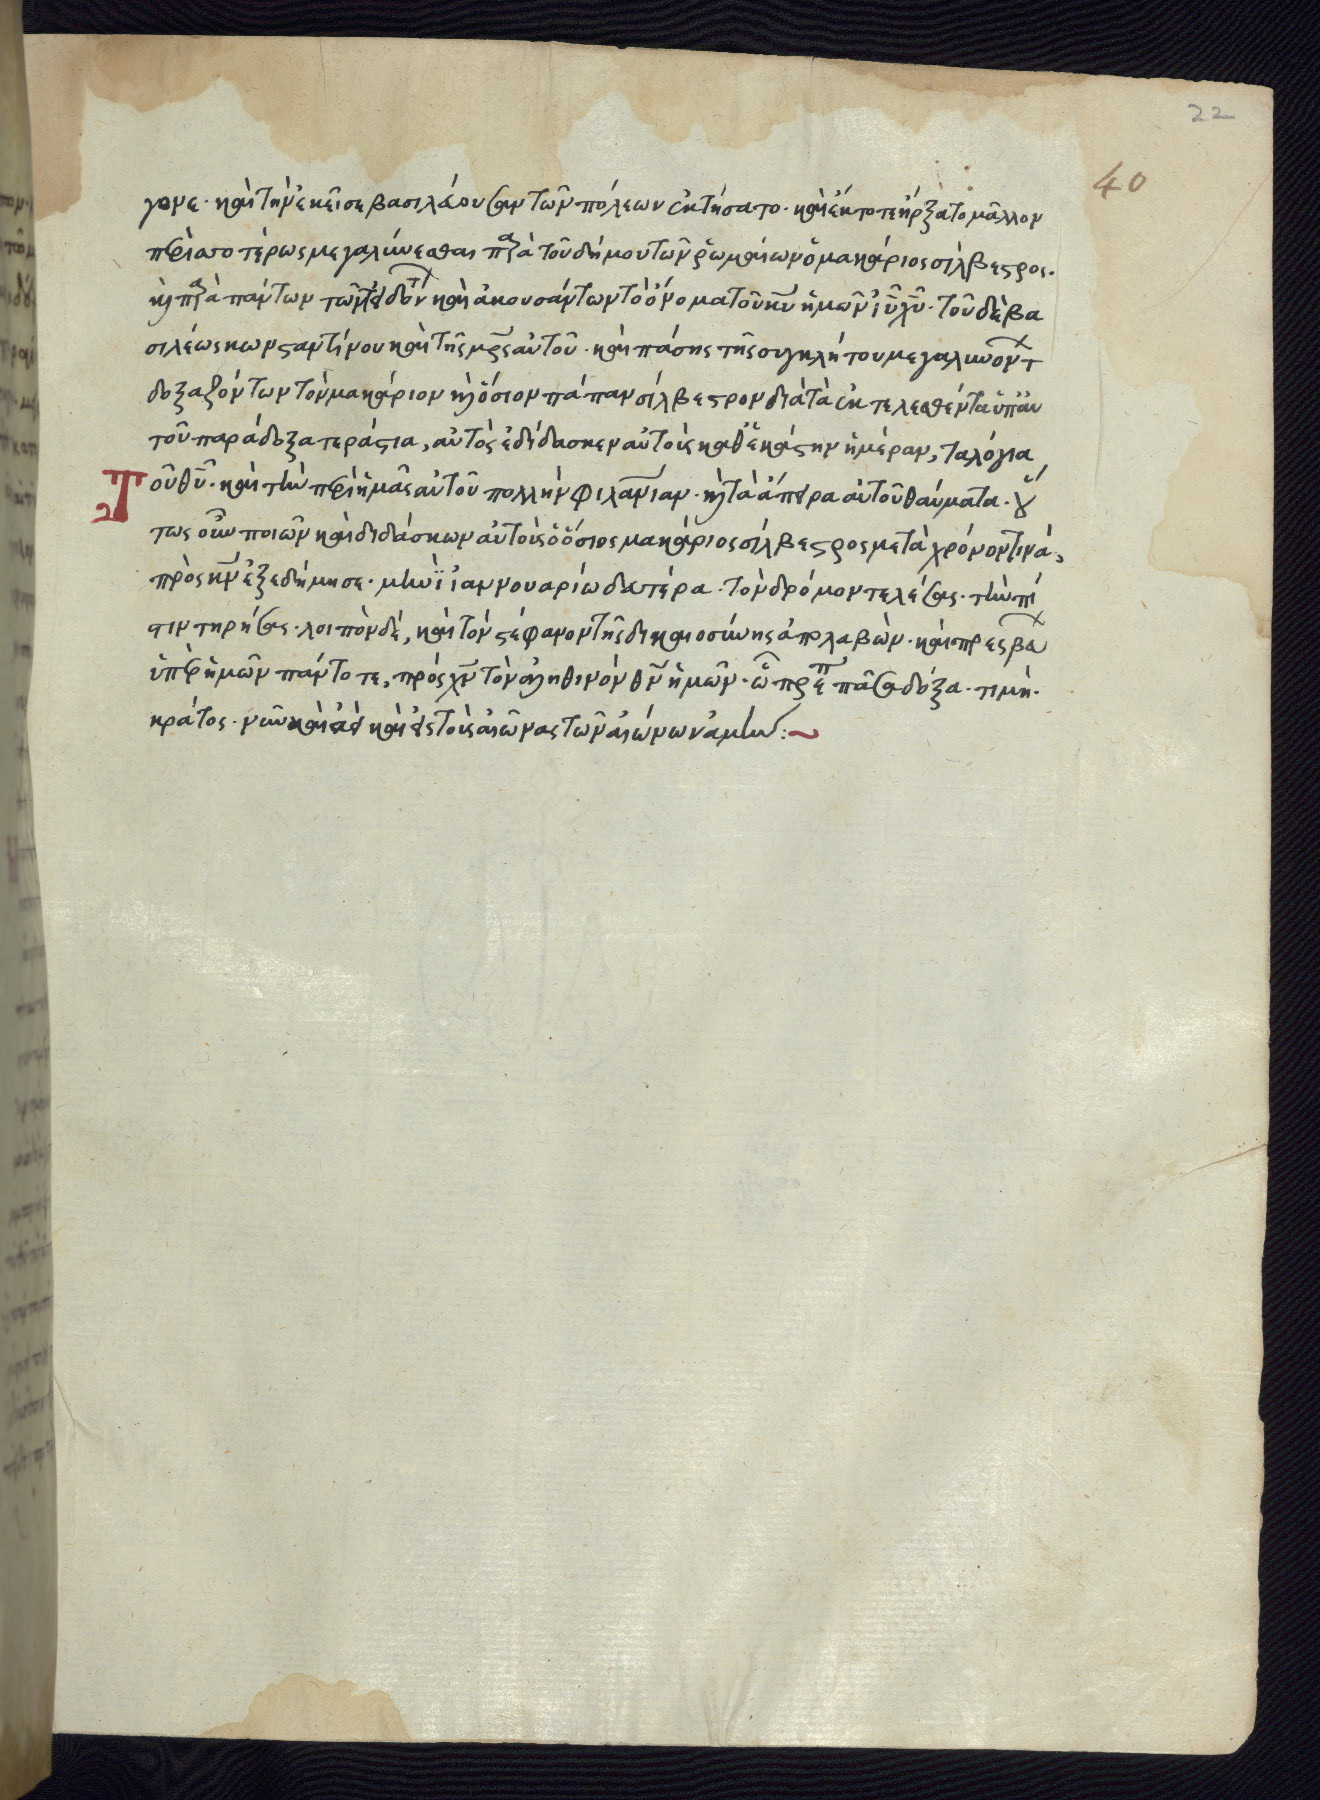 22
40
γονε · καὶ τὴν ἐκεῖσε βασιλεύουσαν τῶν πόλεων ἐκτήσατο · καὶ ἔκτοτε ἤρξατο μᾶλλον
περισσοτέρως μεγαλύνεσθαι παρὰ τοῦ δήμου τῶν ῥωμαίων ὁ μακάριος σίλβεστρος ·
καὶ παρὰ πάντων τῶν καὶ ἀκουσάντων τὸ ὄνομα τοῦ κυ ἡμῶν ιυ χυ · τοῦ δὲ βα
σιλέως κωνσταντίνου καὶ τῆς μρς αὐτοῦ · καὶ πάσης τῆς συγκλήτου μεγαλυνόντ
δοξαζόντων τὸν μακάριον καὶ ὅσιον πάπαν σίλβεστρον διὰ τὰ ἐκτελεσθέντα ὑπ' αὐ
τοῦ παράδοξα τεράστια, αὐτὸς ἐδίδασκεν αὐτοὺς καθ' ἑκάστην ἡμέραν, τα λόγια
Τοῦ θυ · καὶ τὴν περὶ ἡμᾶς αὐτοῦ πολλὴν φιλανίαν · καὶ τὰ ἄπειρα αὐτοῦ θαύματα · οὕ
τως οὖν ποιῶν καὶ διδάσκων αὐτοὺς ὁ ὅσιος μακάριος σίλβεστρος μετὰ χρόνον τινά,
πρὸς κν ἐξεδήμησε · μηνὶ ἰαννουαρίω δευτέρα · τὸν δρόμον τελέσας · τὴν πί
στιν τηρήσας · λοιπὸν δὲ, καὶ τὸν στέφανον τῆς δικαιοσύνης ἀπολαβὼν · καὶ πρεσβεύ
ὑπὲρ ἡμῶν πάντοτε, πρὸς χν τὸν ἀληθινὸν θν ἡμῶν · ὧ πρέπ πᾶσα δόξα · τιμὴ ·
κράτος · νῦν καὶ ἀεὶ καὶ εἰς τοὺς αἰῶνας τῶν αἰώνων ἀμήν :~